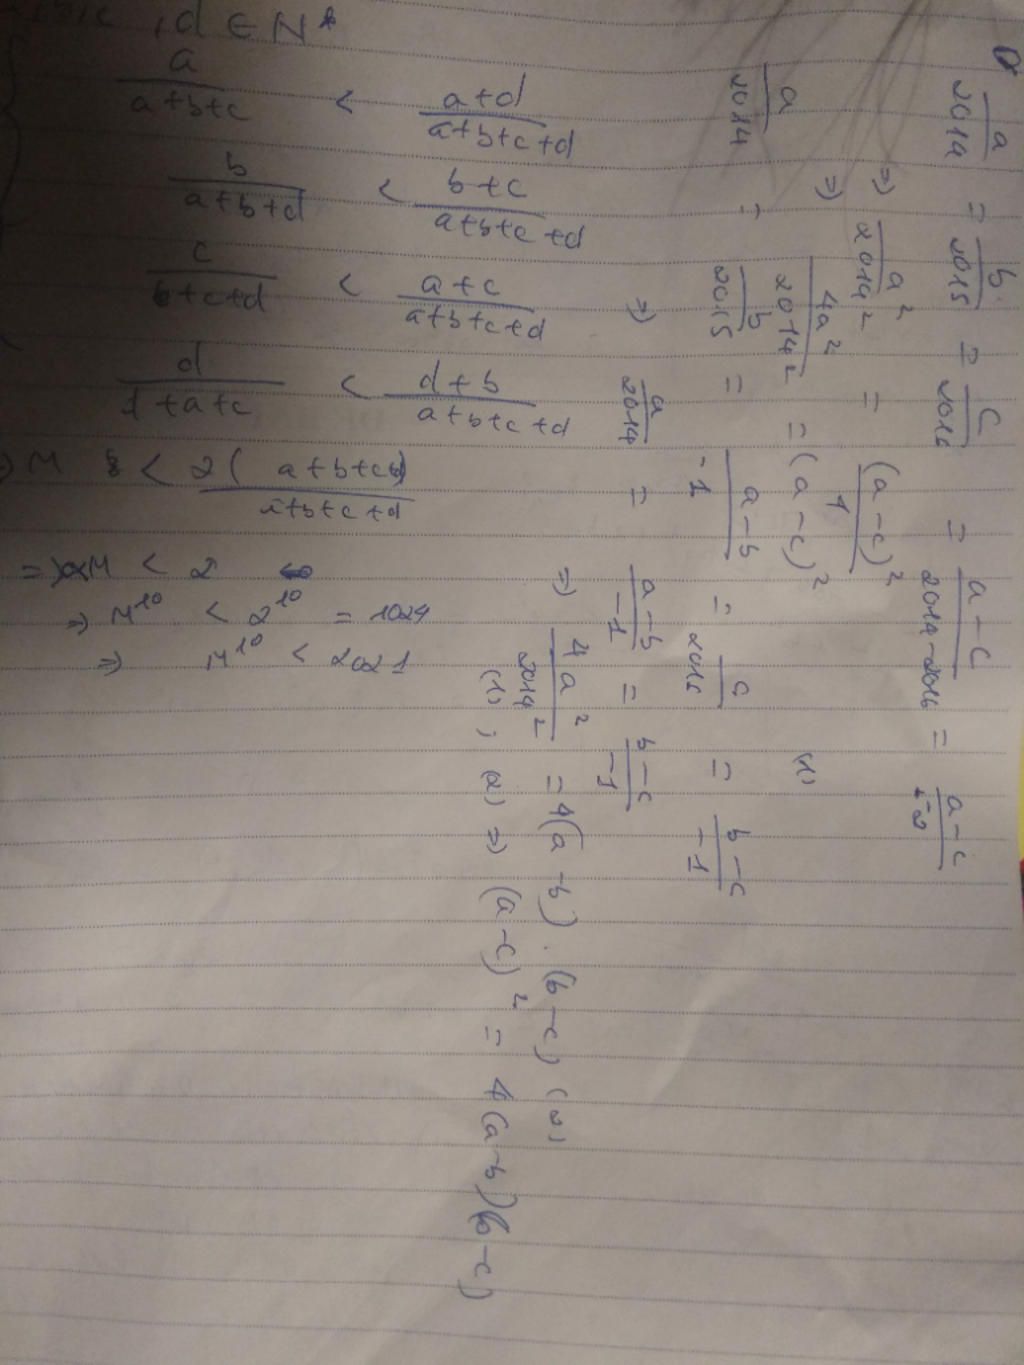 , d ∈ N*
a/(a+b+c) < (a+d)/(a+b+c+d)
b/(a+b+d) < (b+c)/(a+b+c+d)
c/(b+c+d) < (a+c)/(a+b+c+d)
d/(1+a+c) < (d+b)/(a+b+c+d)
M < 2(a+b+c+d)/(a+b+c+d)
=> M < 2
=> M^10 < 2^10 = 1024
=> M^10 < 2021
a/2014 = b/2015 = c/2016 = (a-c)/(2014-2016) = (a-c)/-2
=> a²/2014² = (a-c)²/4
=> 4a²/2014² = (a-c)² (1)
a/2014 = b/2015 = (a-b)/-1 = c/2016 = (b-c)/-1
=> a/2014 = (a-b)/-1 = (b-c)/-1
=> 4a²/2014² = 4(a-b).(b-c) (2)
(1), (2) => (a-c)² = 4(a-b)(b-c)